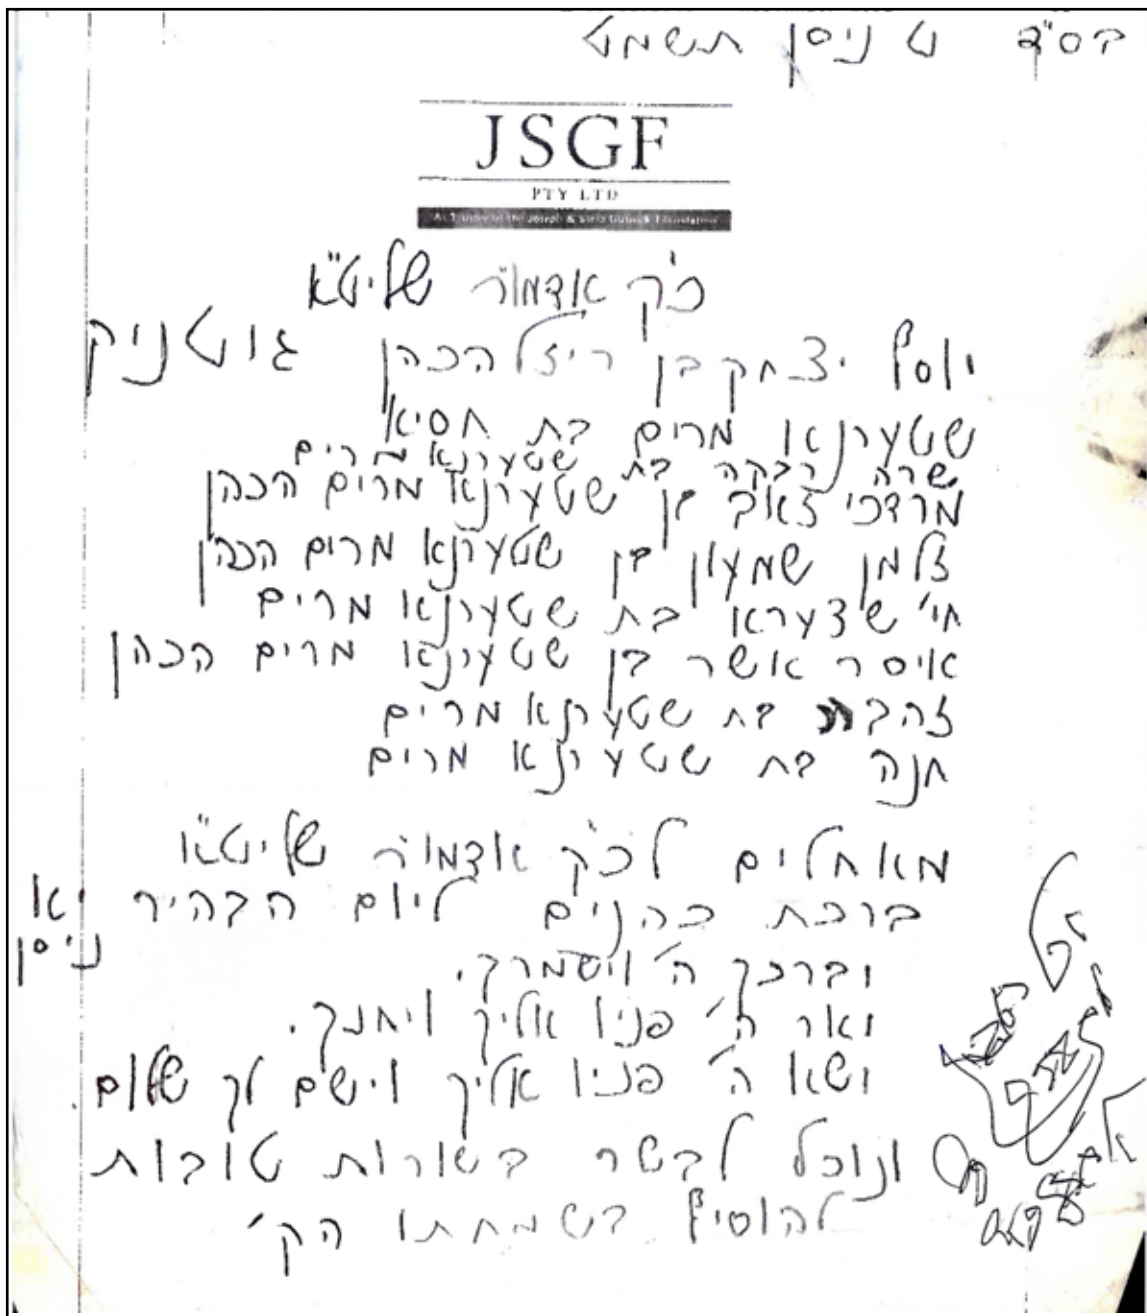 בס"ד ט ניסן תשמט
JSGF
PTY LTD
As Trustee of the Joseph & Stera Gutnick Foundation
כ"ק אדמו"ר שליט"א
יוסף יצחק בן רייזל הכהן גוטניק
שטערנא מרים בת חסיא
שרה רבקה בת שטערנא מרים
מרדכי זאב בן שטערנא מרים הכהן
זלמן שמעון בן שטערנא מרים הכהן
חי' בת שטערנא מרים
איסר אשר בן שטערנא מרים הכהן
בת שטערנא מרים
חנה בת שטערנא מרים
מאחלים לכ"ק אדמו"ר שליט"א
ברכת כהנים ליום הבהיר יא
ניסן
יברכך ה' וישמרך.
יאר ה' פניו אליך ויחנך.
ישא ה' פניו אליך וישם לך שלום.
ונוכל לבשר בשורות טובות
להוסיף בשמחתו הק'